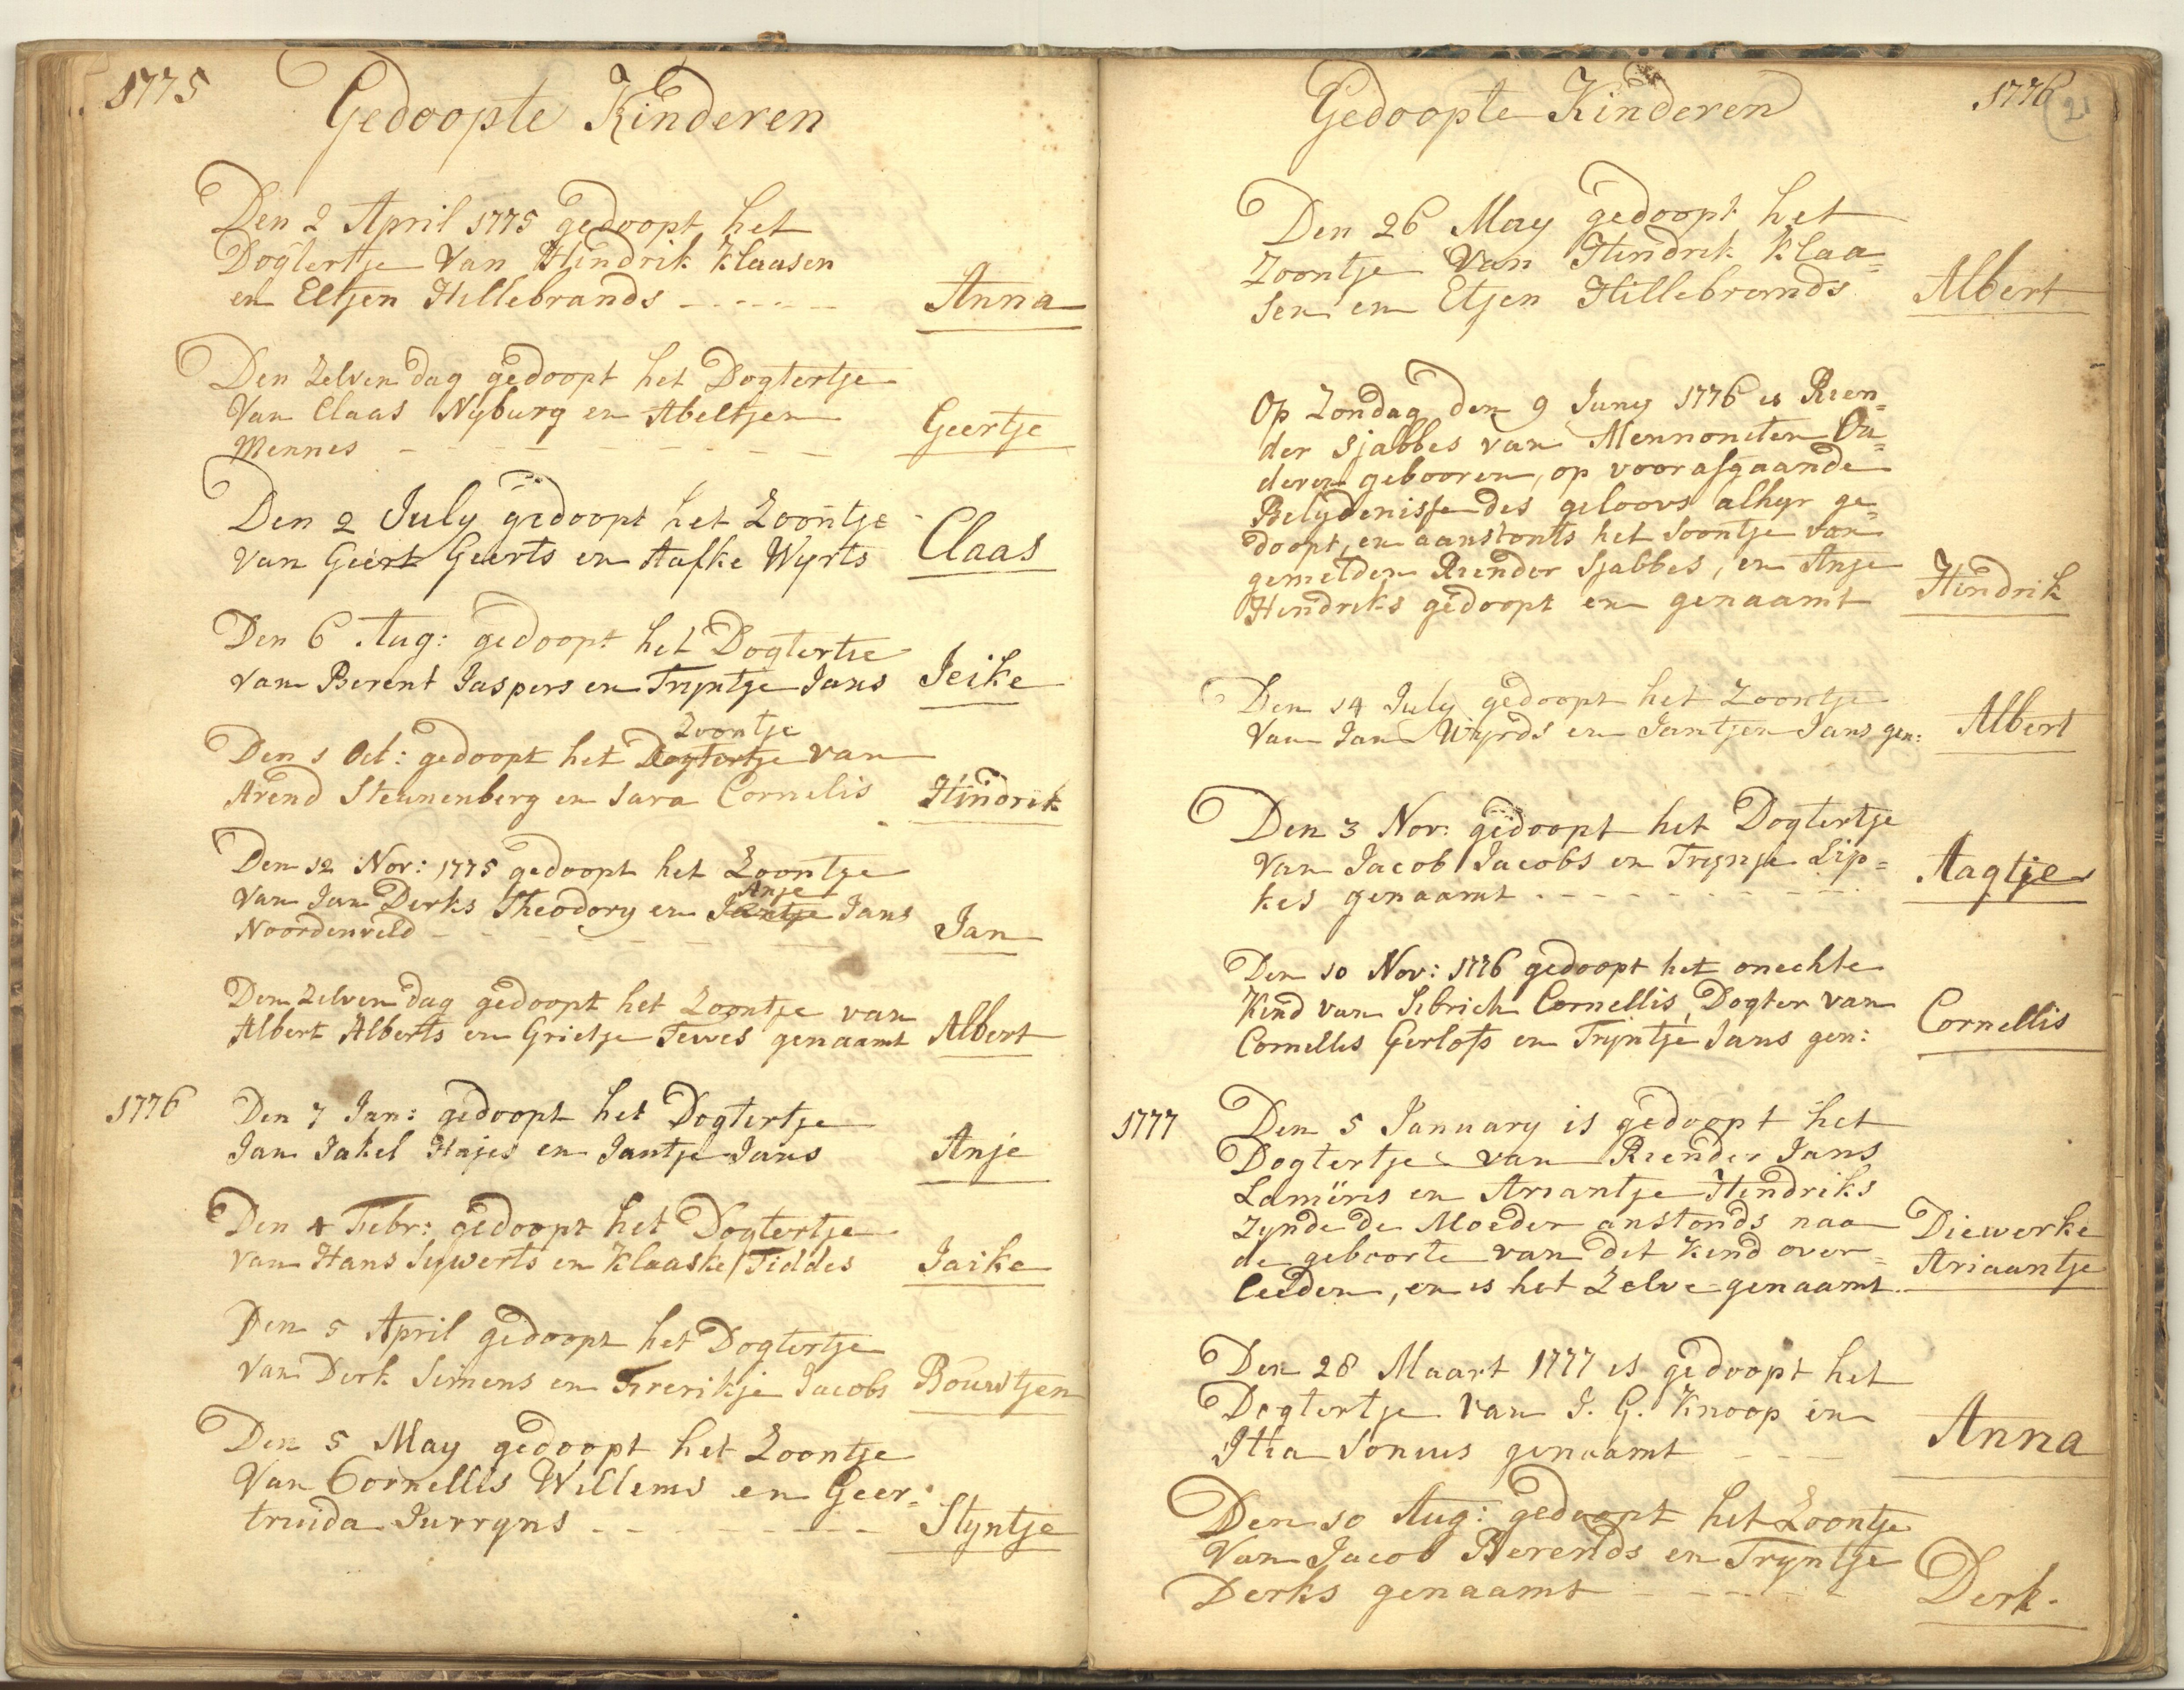 1775
Gedoopte Kinderen
Den 2 April 1775 gedoopt het
Dogtertje Van Hindrik Klaasen
en Eltjen Hillebrands - - - - - Anna
Den Zelven dag gedoopt het Dogtertje
Van Claas Nyburg en Abeltjen
Mennes - - - - - - - - - Geertje
Den 2 July gedoopt het Zoontje
van Geert Geerts en Aafke Wyrts Claas
Den 6 Aug: gedoopt het Dogtertie
van Berent Jaspers en Tryntje Jans Jeike
Zoontje
Den 1 Oct: gedoopt het Dogtertje van
Arend Steunenberg en Sara Cornelis Hindrik
Den 12 Nov: 1775 gedoopt het Zoontje
Anje
Van Jan Derks Theodory en Jantje Jans
Noordenveld - - - - - - - Jan
Den Zelven dag gedoopt het Zoontje van
Albert Alberts en Grietje Tewes genaamt Albert
1776 Den 7 Jan: gedoopt het Dogtertje
Jan Jakel Hajes en Jantje Jans Anje
Den 4 Febr: gedoopt het Dogtertje
van Hans Sywerts en Klaaske Tiddes Jaike
Den 5 April gedoopt het Dogtertje
Van Derk Simens en Frerikje Jacobs Bouwtjen
Den 5 May gedoopt het Zoontje
Van Cornellis Willems en Geer=
truida Jurryns - - - - - - - - Styntje
Gedoopte Kinderen
1776
21
Den 26 May gedoopt het
Zoontje Van Hindrik Klaa=
sen en Etjen Hillebrands Albert
Op Zondag den 9 Juny 1776 is Rien=
der Sjabbes van Mennoniten Ou=
deren gebooren, op voorafgaande
Belydenisse des geloovs alhyr ge=
doopt, en aanstonts het Soontje van
gemelden Riender Sjabbes, en Anje
Hindriks gedoopt en genaamt Hindrik
Den 14 July gedoopt het Zoontje
Van Jan Wyrds en Jantjen Jans gen: Albert
Den 3 Nov: gedoopt het Dogtertje
Van Jacob Jacobs en Trynje Lip=
kes genaamt - - - - - - - - Aagtje
Den 10 Nov: 1776 gedoopt het onechte
Kind van Sibrich Cornellis, Dogter van
Cornellis Gerlofs en Tryntje Jans gen: Cornellis
1777 Den 5 January is gedoopt het
Dogtertje van Riender Jans
Lamöris en Ariantje Hindriks
Zynde de Moeder anstonds naa
de geboorte van dit Kind over=
leeden, en is het Zelve genaamt Diewerke Ariaantje
Den 28 Maart 1777 is gedoopt het
Dogtertje Van J. G. Knoop en
Itia Sonius genaamt - - - Anna
Den 10 Aug: gedoopt het Zoontje
Van Jacob Berends en Tryntje
Derks genaamt - - - - - Derk.